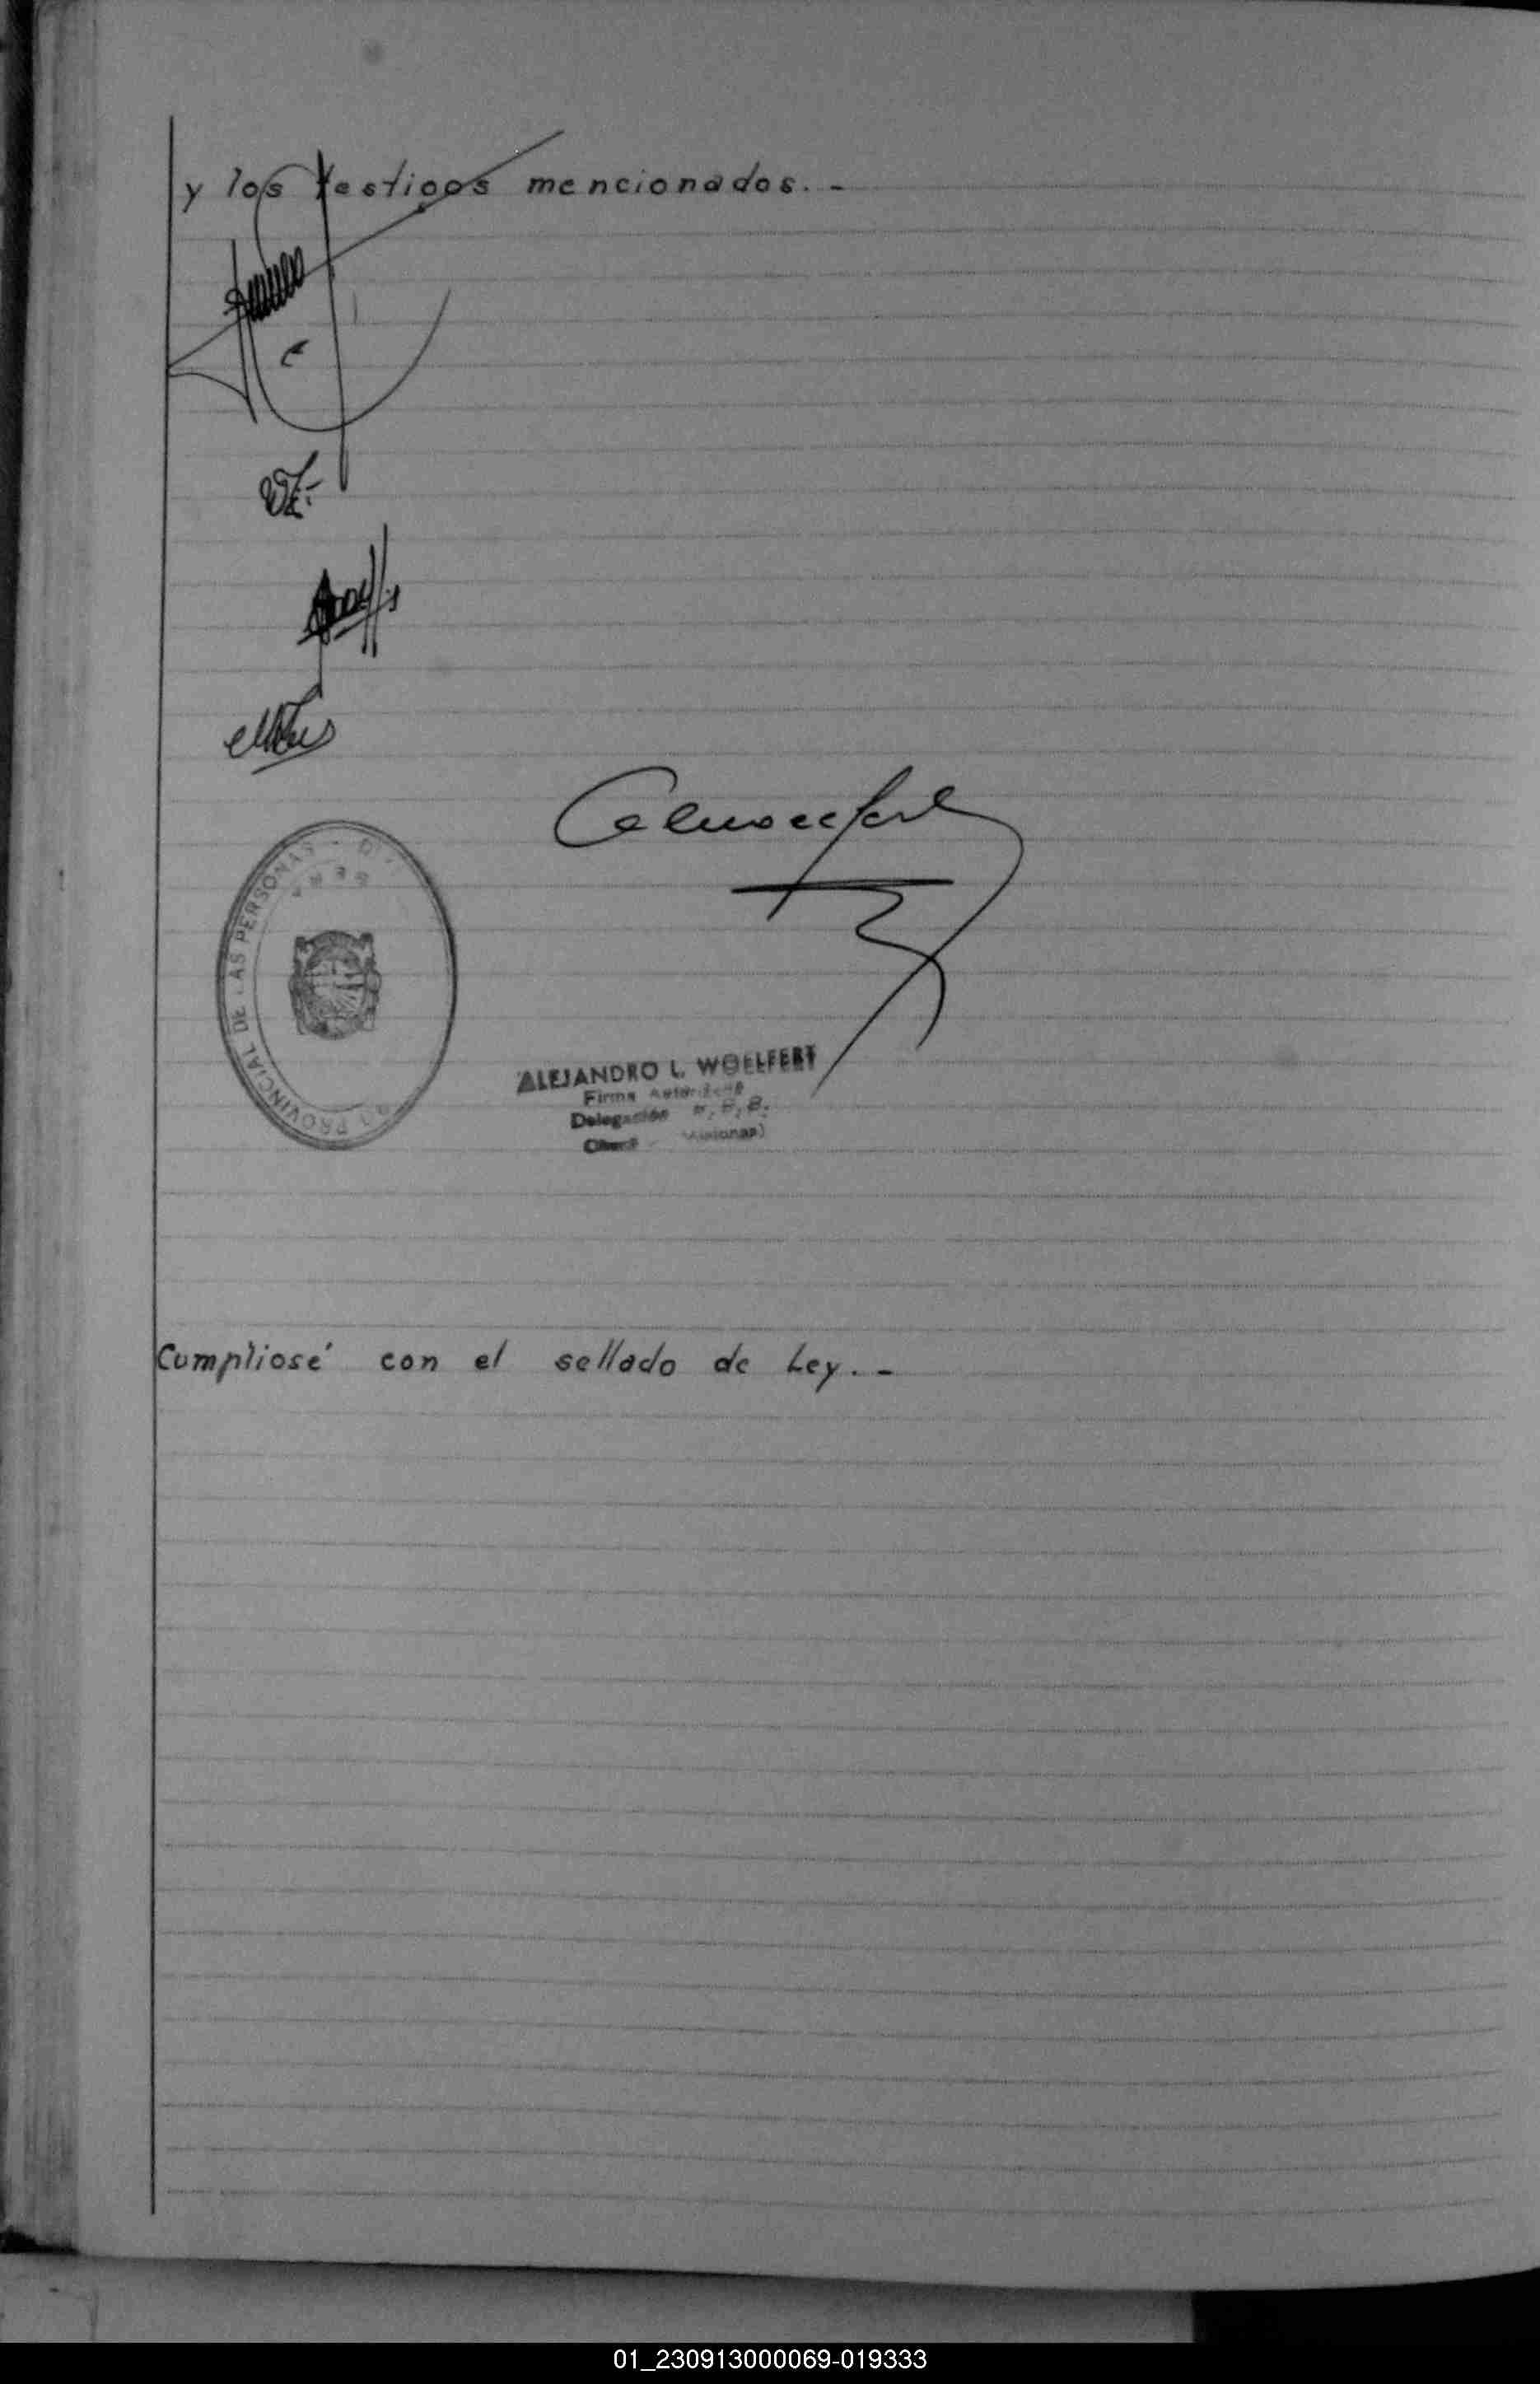 y los testigos mencionados. -
PROVINCIAL DE LAS PERSONAS
ALEJANDRO L. WOELFERT
Firma Autorizada
Delegación
Cumpliosé con el sellado de Ley. -
01_230913000069-019333